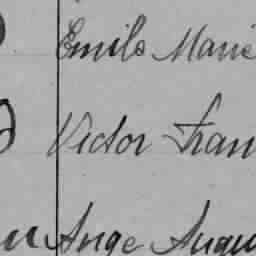 Emile Marie
Victor Fran
Ange Augu